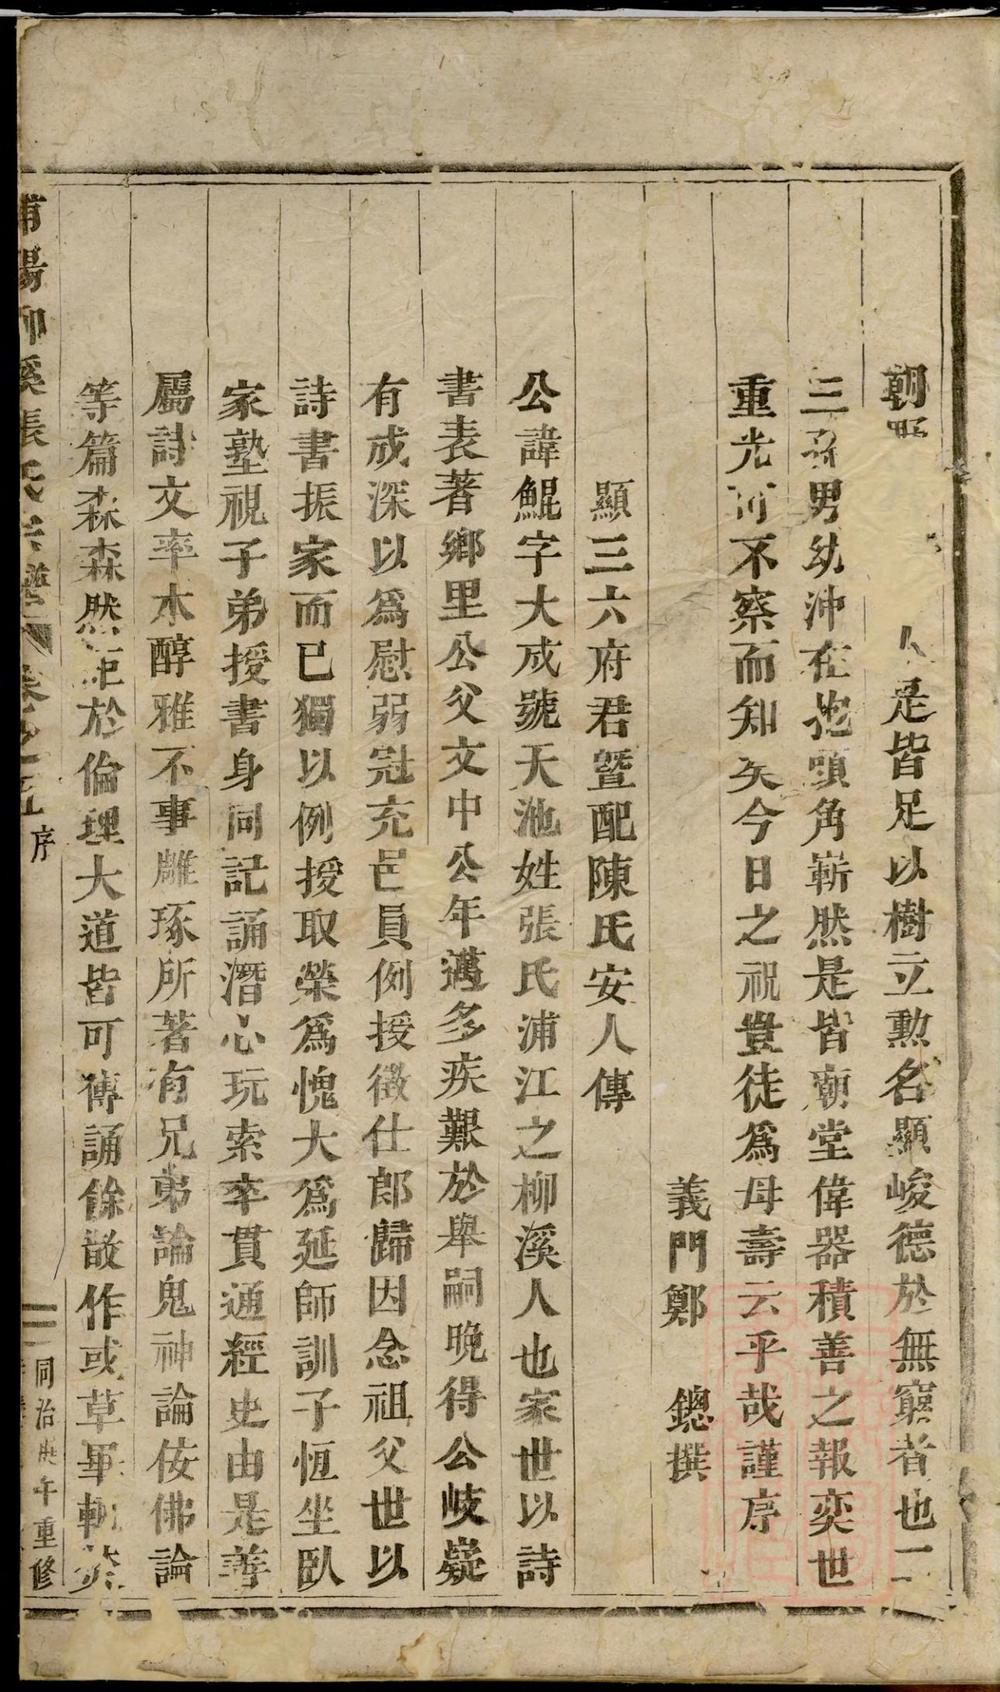 朝 是皆足以樹立勲名顯峻德於無窮者也二
三孫男幼沖在抱頭角嶄然是皆廟堂偉器積善之報奕世
重光可不察而知矣今日之祝豈徒為母壽云乎哉謹序
義門鄭 鏓撰
顯三六府君曁配陳氏安人傳
公諱鯤字大成號天池姓張氏浦江之柳溪人也家世以詩
書表著鄉里公父文中公年邁多疾艱於舉嗣晚得公岐嶷
有成深以爲慰弱冠充邑員例授徵仕郎歸因念祖父世以
詩書振家而已獨以例授取榮爲愧大爲延師訓子恆坐臥
家塾視子弟授書身同記誦潛心玩索卒貫通經史由是善
屬詩文率本醇雅不事雕琢所著有兄弟論鬼神論佞佛論
等篇森森然 於倫理大道皆可傳誦餘散作或草畢輒焚
浦陽柳溪張氏宗譜 卷之五 序
同治庚午重修